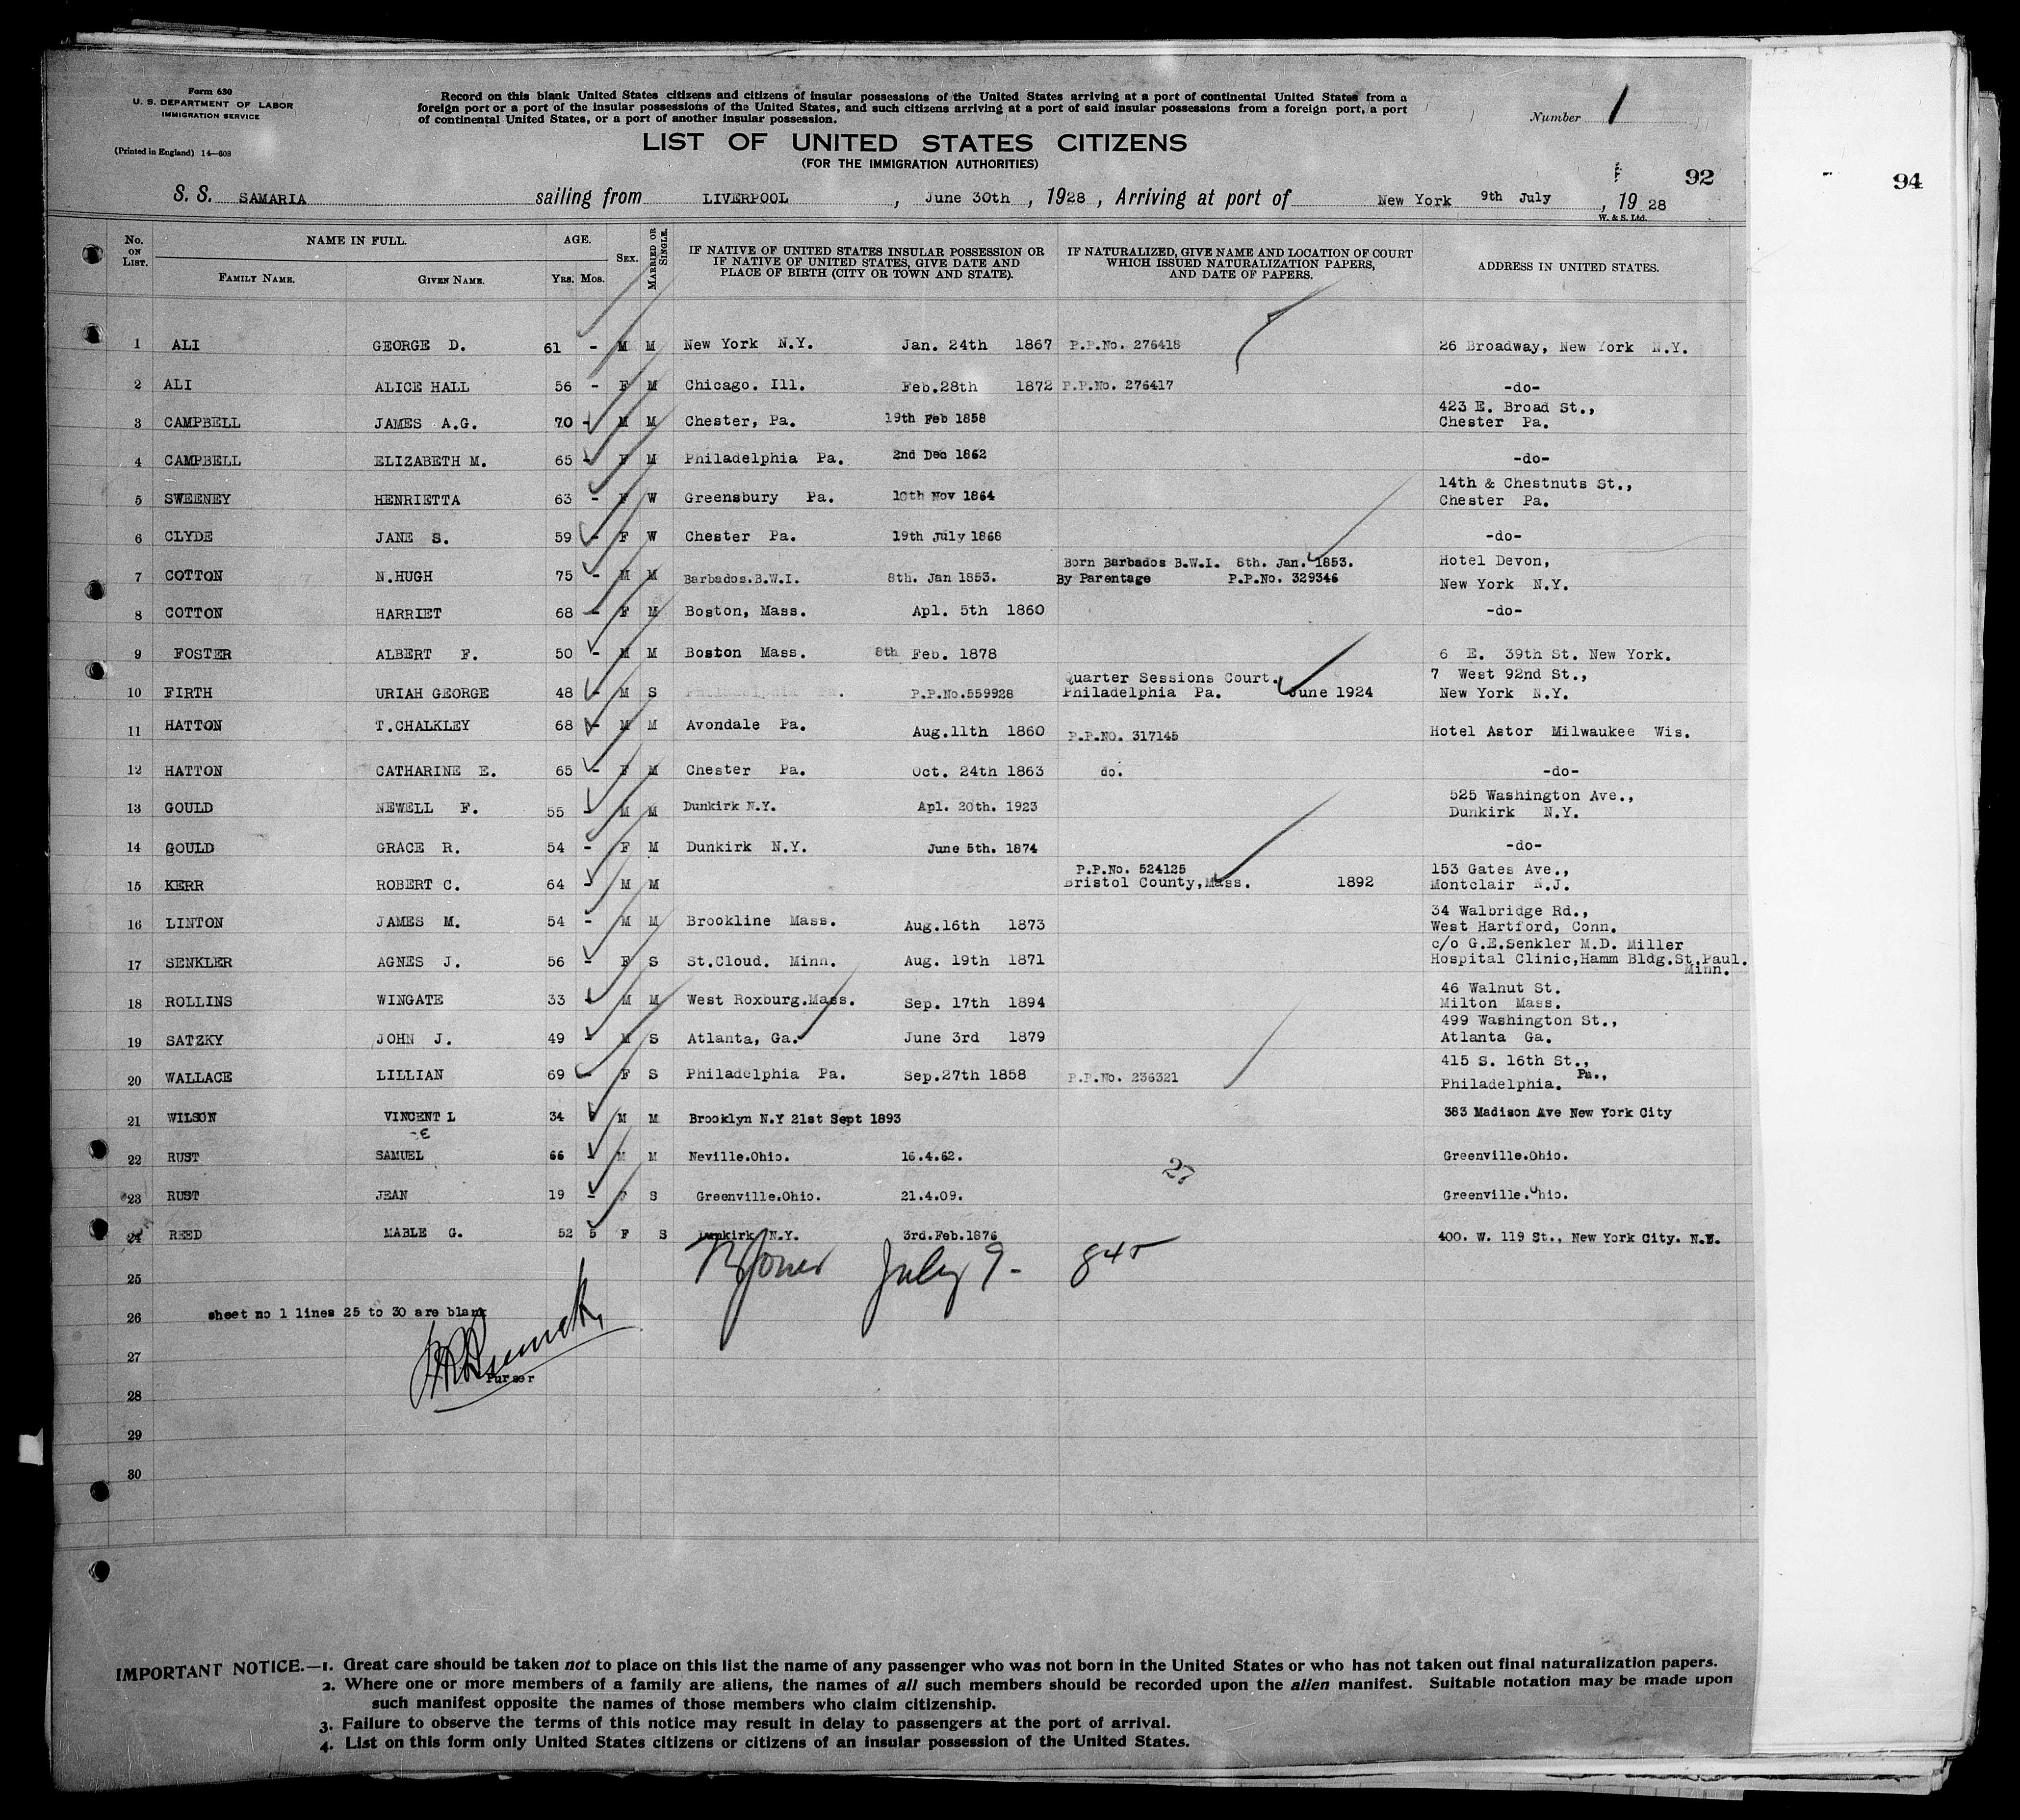 Form 630
U. S. DEPARTMENT OF LABOR
IMMIGRATION SERVICE
(Printed in England) 14—608
Record on this blank United States citizens and citizens of insular possessions of the United States arriving at a port of continental United States from a
foreign port or a port of the insular possessions of the United States, and such citizens arriving at a port of said insular possessions from a foreign port, a port
of continental United States, or a port of another insular possession.
Number 1
LIST OF UNITED STATES CITIZENS
(FOR THE IMMIGRATION AUTHORITIES)
92
94
S. S. SAMARIA sailing from LIVERPOOL , June 30th , 1928 , Arriving at port of New York 9th July , 19 28
W. & S. Ltd.
No. ON LIST. NAME IN FULL. FAMILY NAME. GIVEN NAME. AGE. YRS. MOS. SEX. MARRIED OR SINGLE. IF NATIVE OF UNITED STATES INSULAR POSSESSION OR IF NATIVE OF UNITED STATES, GIVE DATE AND PLACE OF BIRTH (CITY OR TOWN AND STATE). IF NATURALIZED, GIVE NAME AND LOCATION OF COURT WHICH ISSUED NATURALIZATION PAPERS, AND DATE OF PAPERS. ADDRESS IN UNITED STATES.
1 ALI GEORGE D. 61 - M M New York N.Y. Jan. 24th 1867 P.P.No. 276418 26 Broadway, New York N.Y.
2 ALI ALICE HALL 56 - F M Chicago. Ill. Feb.28th 1872 P.P.No. 276417 -do-
3 CAMPBELL JAMES A.G. 70 - M M Chester, Pa. 19th Feb 1858 423 E. Broad St., Chester Pa.
4 CAMPBELL ELIZABETH M. 65 - F M Philadelphia Pa. 2nd Dec 1862 -do-
5 SWEENEY HENRIETTA 63 - F W Greensbury Pa. 10th Nov 1864 14th & Chestnuts St., Chester Pa.
6 CLYDE JANE S. 59 - F W Chester Pa. 19th July 1868 -do-
7 COTTON N.HUGH 75 - M M Barbados.B.W.I. 8th. Jan 1853. Born Barbados B.W.I. 8th. Jan. 1853. By Parentage P.P.No. 329346 Hotel Devon, New York N.Y.
8 COTTON HARRIET 68 - F M Boston, Mass. Apl. 5th 1860 -do-
9 FOSTER ALBERT F. 50 - M M Boston Mass. 8th Feb. 1878 6 E. 39th St. New York.
10 FIRTH URIAH GEORGE 48 - M S Philadelphia Pa. P.P.No.559928 Quarter Sessions Court. Philadelphia Pa. June 1924 7 West 92nd St., New York N.Y.
11 HATTON T.CHALKLEY 68 - M M Avondale Pa. Aug.11th 1860 P.P.NO. 317145 Hotel Astor Milwaukee Wis.
12 HATTON CATHARINE E. 65 - F M Chester Pa. Oct. 24th 1863 do. -do-
13 GOULD NEWELL F. 55 - M M Dunkirk N.Y. Apl. 20th. 1923 525 Washington Ave., Dunkirk N.Y.
14 GOULD GRACE R. 54 - F M Dunkirk N.Y. June 5th. 1874 -do-
15 KERR ROBERT C. 64 - M M P.P.No. 524125 Bristol County,Mass. 1892 153 Gates Ave., Montclair N.J.
16 LINTON JAMES M. 54 - M M Brookline Mass. Aug.16th 1873 34 Walbridge Rd., West Hartford, Conn.
17 SENKLER AGNES J. 56 - F S St.Cloud. Minn. Aug. 19th 1871 c/o G.E.Senkler M.D. Miller Hospital Clinic,Hamm Bldg.St.Paul. Minn.
18 ROLLINS WINGATE 33 - M M West Roxburg.Mass. Sep. 17th 1894 46 Walnut St. Milton Mass.
19 SATZKY JOHN J. 49 - M S Atlanta, Ga. June 3rd 1879 499 Washington St., Atlanta Ga.
20 WALLACE LILLIAN 69 - F S Philadelphia Pa. Sep.27th 1858 P.P.No. 236321 415 S. 16th St., Philadelphia. Pa.,
21 WILSON VINCENT L 34 M M Brooklyn N.Y 21st Sept 1893 383 Madison Ave New York City
22 RUST SAMUEL E 66 - M M Neville.Ohio. 16.4.62. Greenville.Ohio.
27
23 RUST JEAN 19 - F S Greenville.Ohio. 21.4.09. Greenville.Ohio.
24 REED MABLE G. 52 5 F S Dunkirk N.Y. 3rd.Feb.1876 400. W. 119 St., New York City. N.Y.
25 July 9 - 845
26 sheet no 1 lines 25 to 30 are blank
27
Purser
28
29
30
IMPORTANT NOTICE.—1. Great care should be taken not to place on this list the name of any passenger who was not born in the United States or who has not taken out final naturalization papers.
2. Where one or more members of a family are aliens, the names of all such members should be recorded upon the alien manifest. Suitable notation may be made upon
such manifest opposite the names of those members who claim citizenship.
3. Failure to observe the terms of this notice may result in delay to passengers at the port of arrival.
4. List on this form only United States citizens or citizens of an insular possession of the United States.